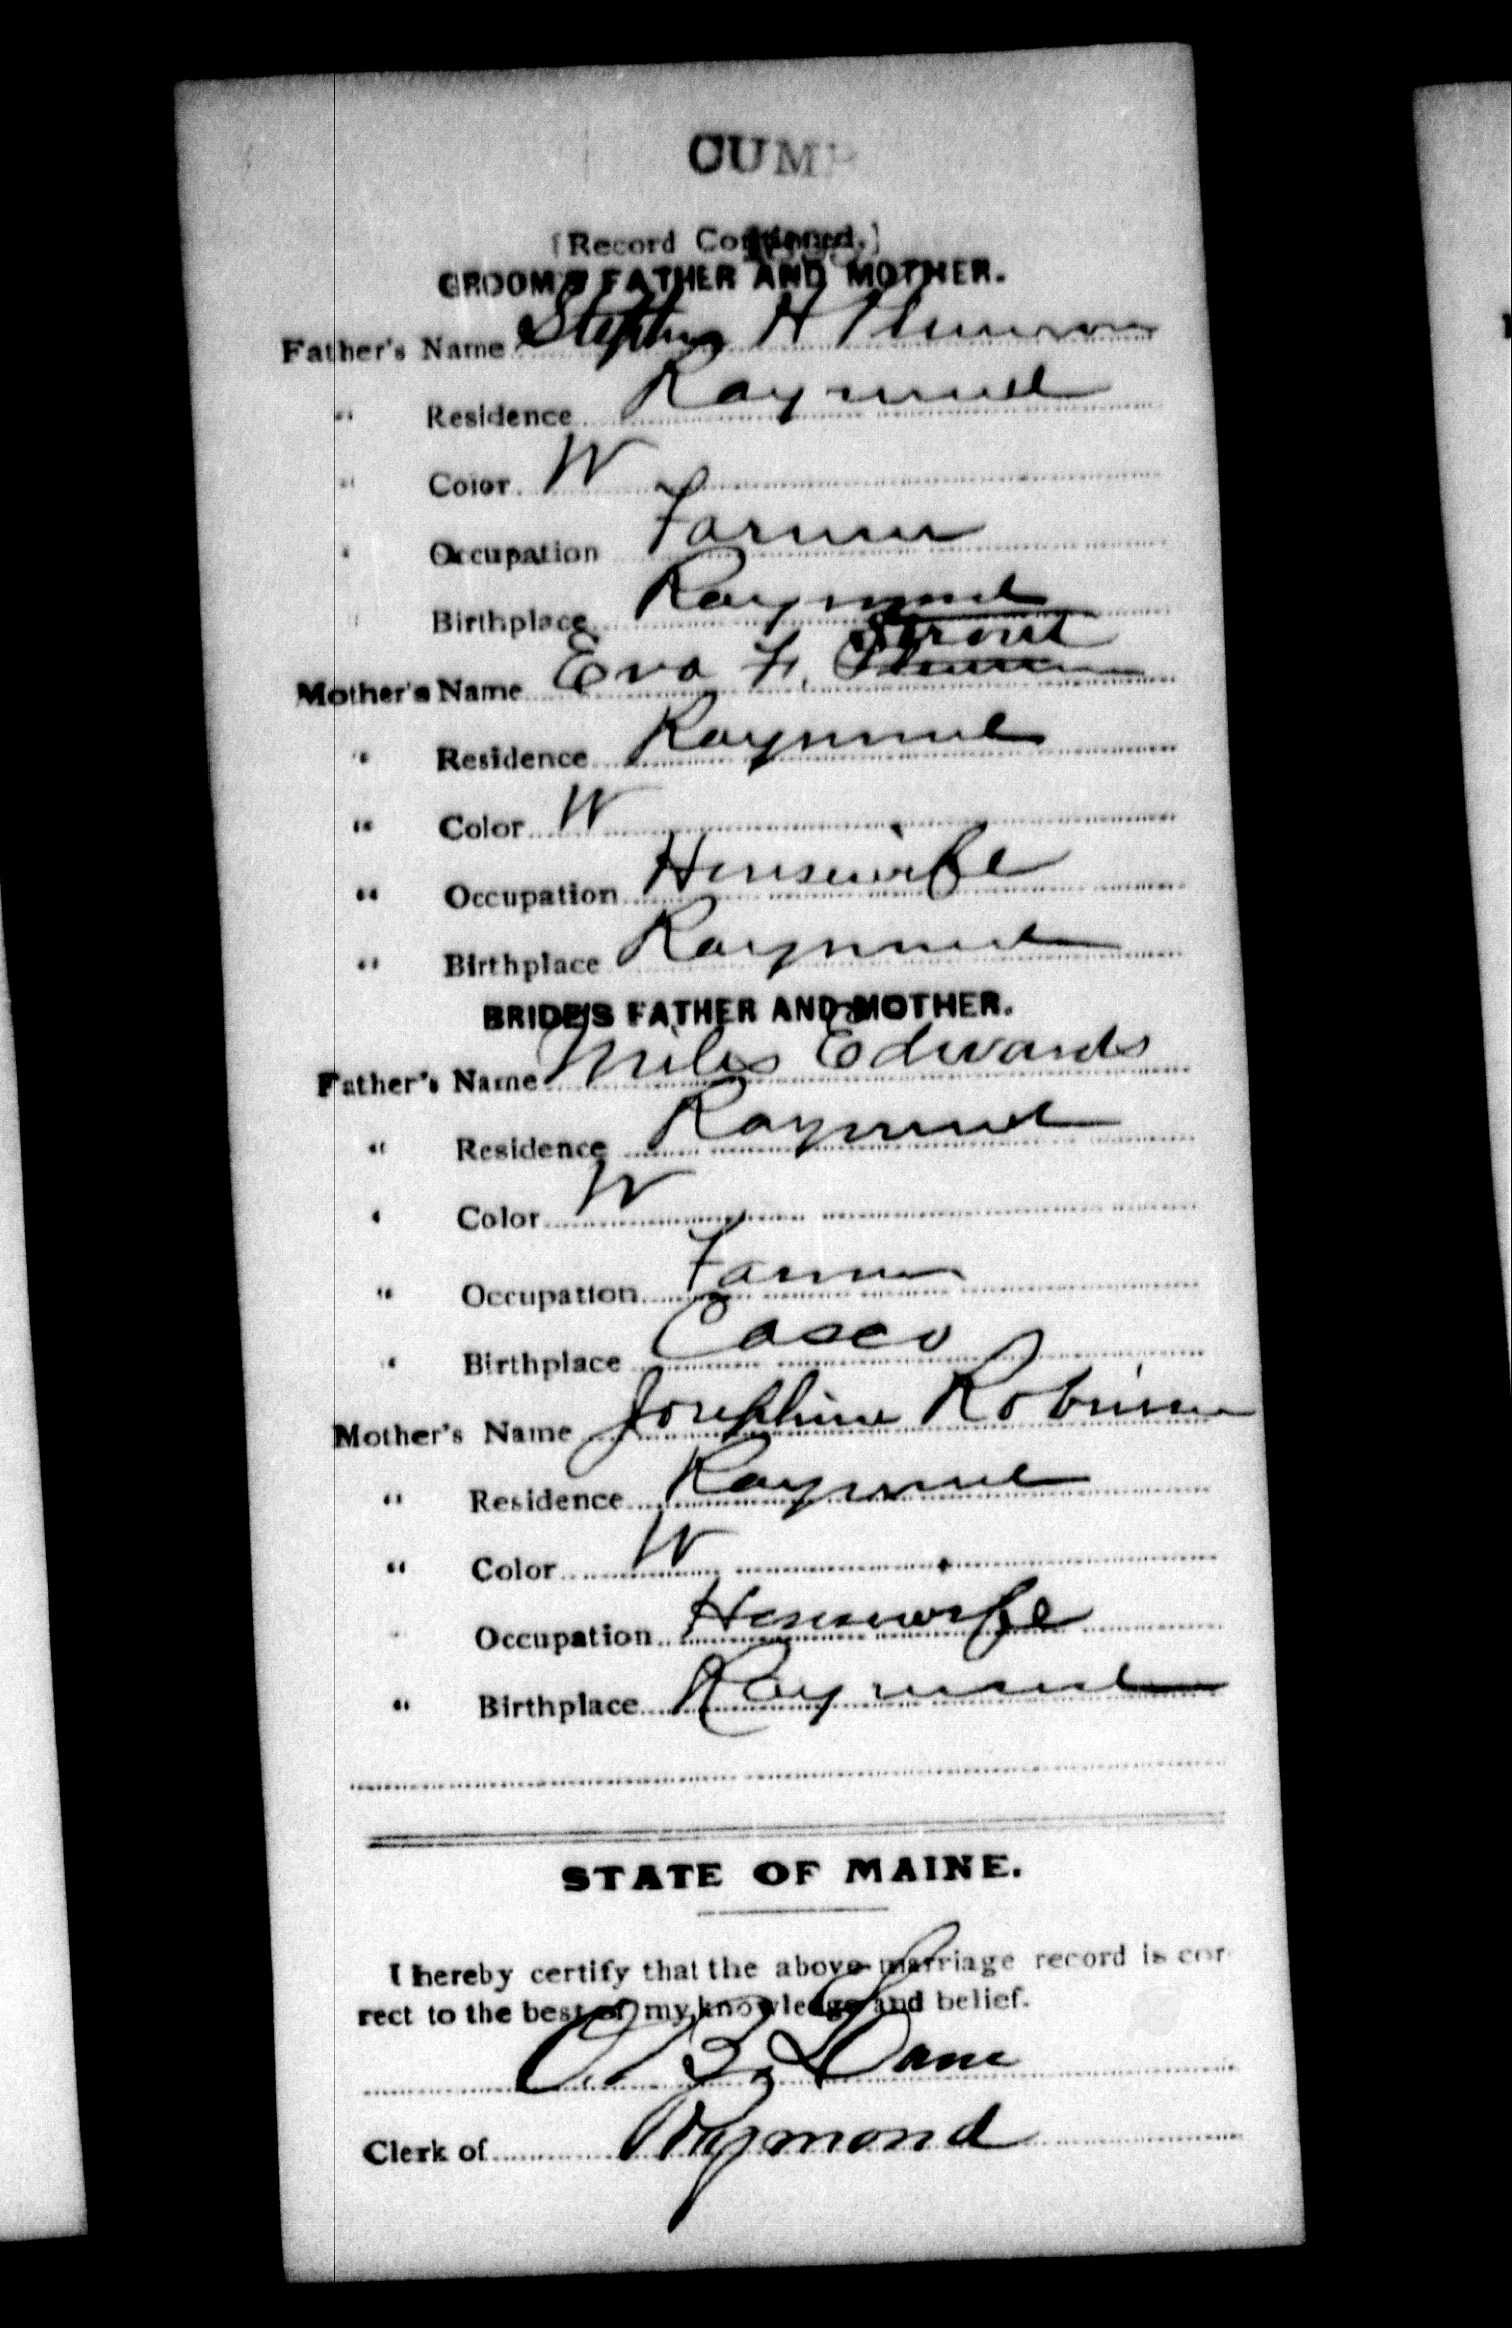 CUMB
[Record Continued.]
GROOM'S FATHER AND MOTHER.
Father's Name Stephen H
" Residence Raymond
" Color W
" Occupation Farmer
" Birthplace Raymond
Strout
Mother's Name Eva F.
" Residence Raymond
" Color W
" Occupation Housewife
" Birthplace Raymond
BRIDE'S FATHER AND MOTHER.
Father's Name Miles Edwards
" Residence Raymond
" Color W
" Occupation Farmer
" Birthplace Casco
Mother's Name Josephine Robinson
" Residence Raymond
" Color W
" Occupation Housewife
" Birthplace Raymond
STATE OF MAINE.
I hereby certify that the above marriage record is cor
rect to the best of my knowledge and belief.
Clerk of Raymond